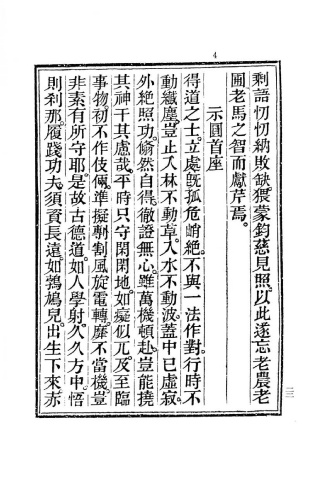 4
剩語忉忉納敗缺猥蒙鈞慈見照以此遂忘老農老
圃老馬之智而獻芹焉
示圓首座
得道之士立處既孤危峭絕不與一法作對行時不
動纖塵豈止入林不動草入水不動波蓋中已虛寂
外絕照功翛然自得徹證無心雖萬機頓赴豈能撓
其神干其慮哉平時只守閑閑地如癡似兀及至臨
事物初不作伎倆準擬剸割風旋電轉靡不當機豈
非素有所守耶是故古德道如人學射久久方中悟
則剎那履踐功夫須資長遠如鵓鳩兒出生下來赤
二三